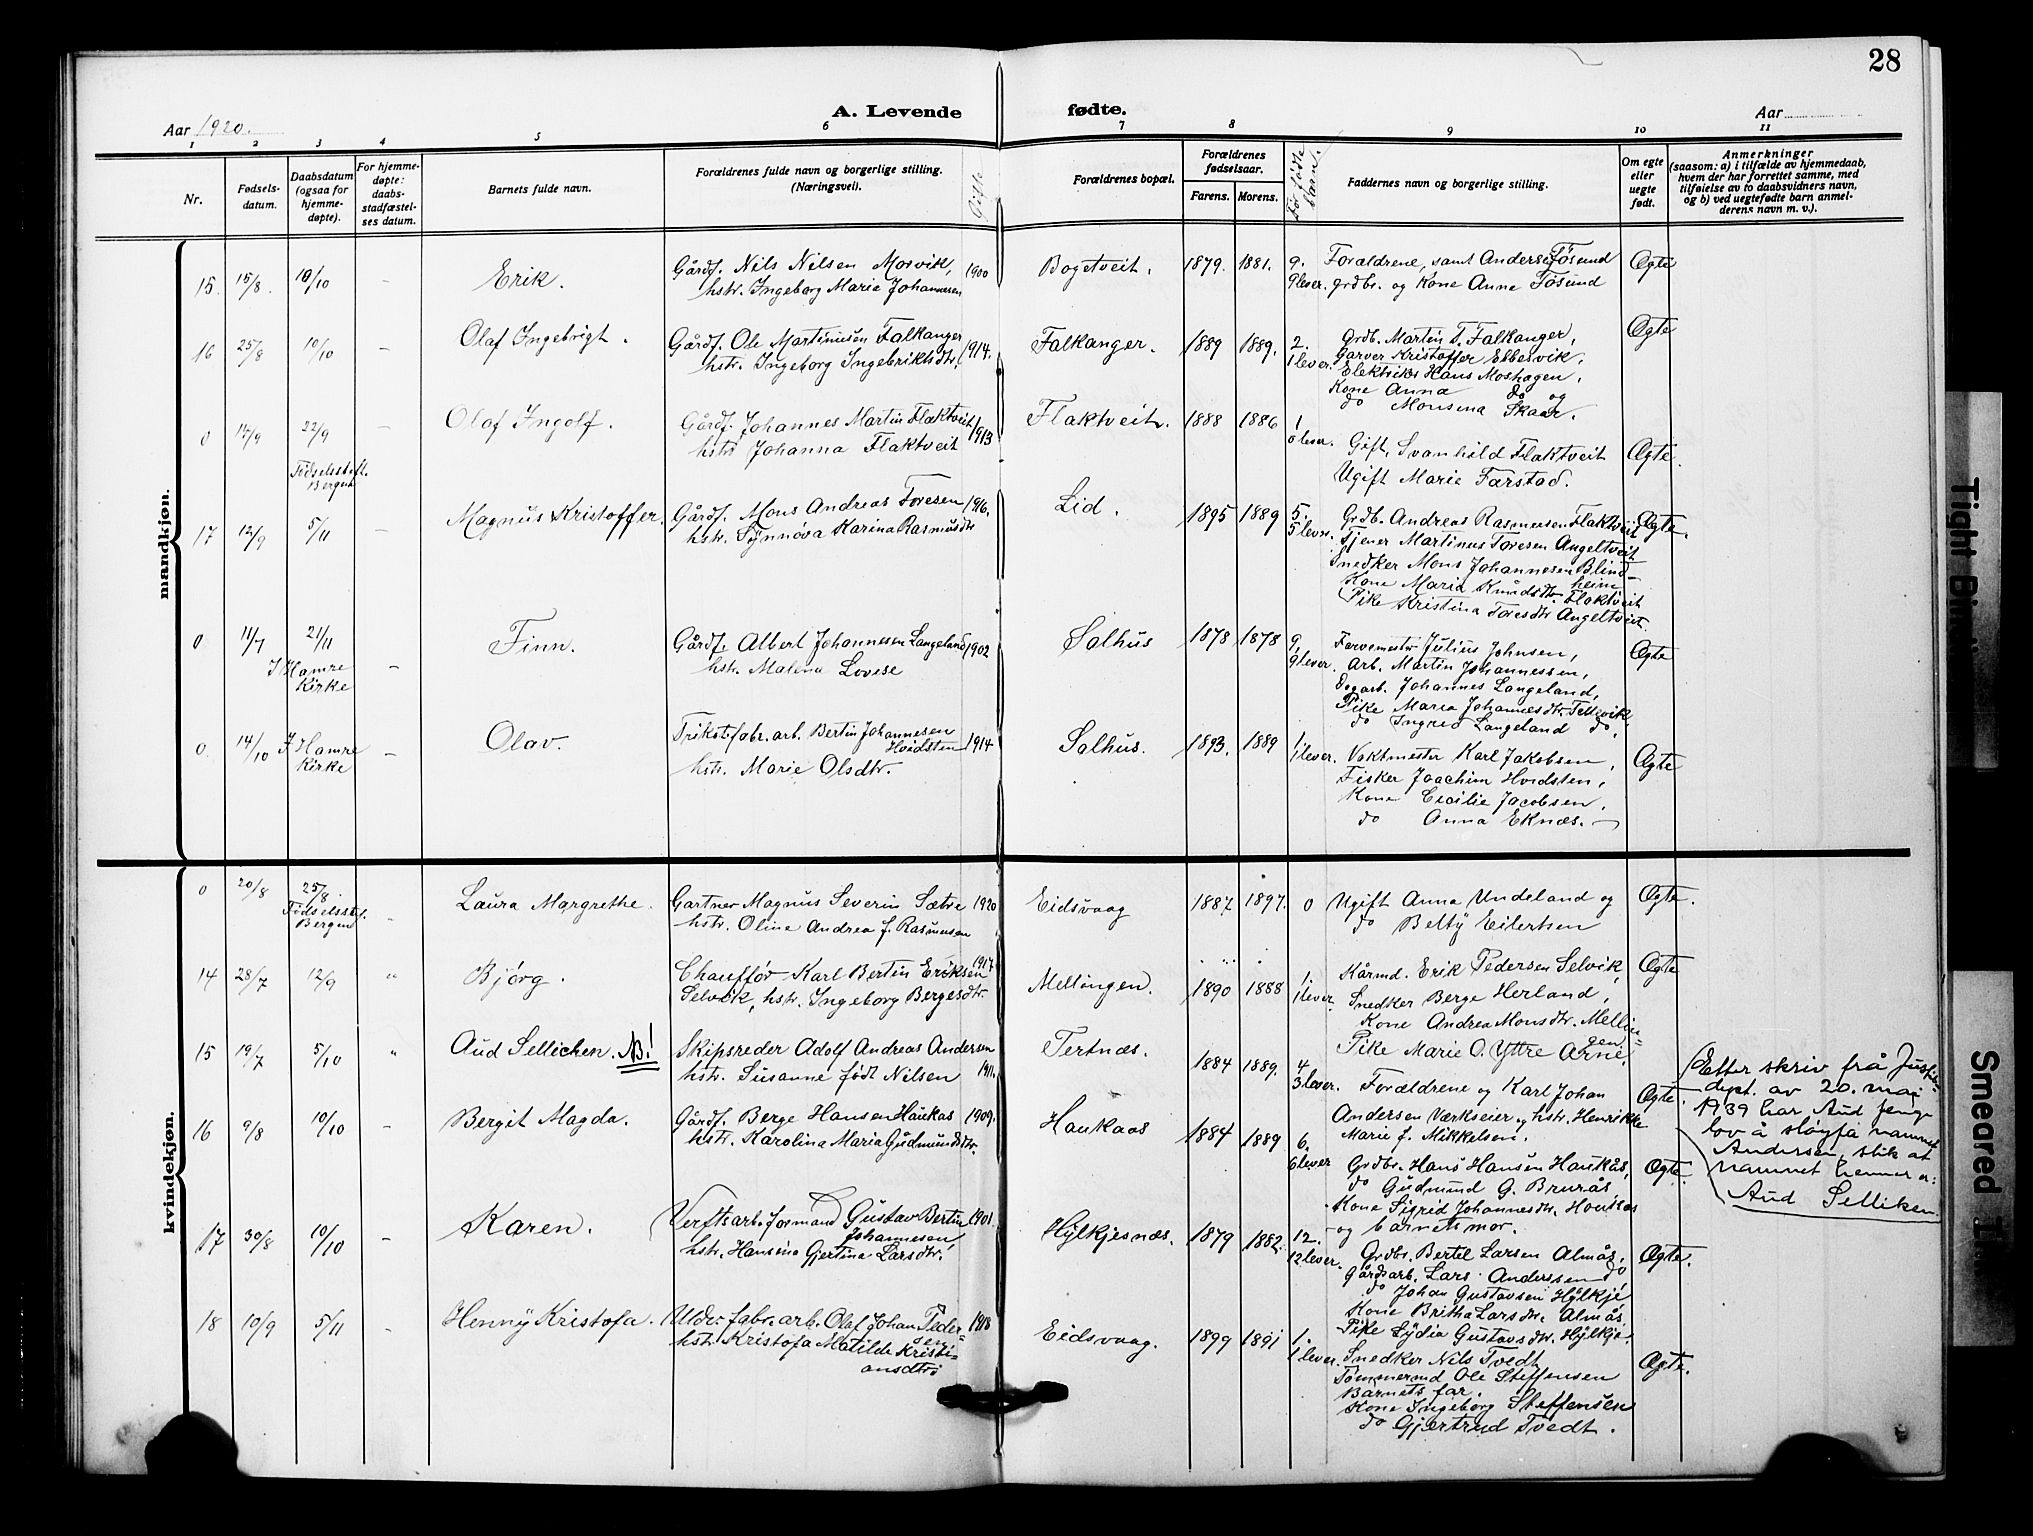 28
A. Levende fødte.
Aar 1920.
Aar
1 2 3 4 5 6 7 8 9 10 11
Nr.
Fødsels-
datum.
Daabsdatum
(ogsaa for
hjemme-
døpte).
For hjemme-
døpte:
daabs-
stadfæstel-
ses datum.
Barnets fulde navn.
Forældrenes fulde navn og borgerlige stilling.
(Næringsvei).
Gifte
Forældrenes bopæl.
Forældrenes
fødselsaar.
Farens. Morens.
Før fødte
barn.
Faddernes navn og borgerlige stilling.
Om egte
eller
uegte
født.
Anmerkninger
(saasom: a) i tilfælde av hjemmedaab,
hvem der har forrettet samme, med
tilføielse av to daabsvidners navn,
og b) ved uegtefødte barn anmel-
derens navn m. v.).
mandkjøn.
15. 15/8. 10/10 - Erik.
Gårdf. Nils Nilsen Morvik,
hstr. Ingeborg Marie Johannesen
1900
Bogetveit. 1879. 1881. 9.
9 lever.
Forældrene, samt Anders Tøsund
grdbr. og Kone Anna Tøsund
Ægte
16 25/8 10/10 - Olaf Ingebrigt.
Gårdf. Ole Martinusen Falkanger
hstr. Ingeborg Ingebriktsdtr.
1914.
Falkanger. 1889 1889. 2.
1 lever.
Grdb. Martin T. Falkanger,
Garver Kristoffer Ebbesvik,
Elektriker Hans Moshagen,
Kone Anna do og
do Monsena Skaar.
Ægte
0 14/9 22/9
Fødselsstift.
Bergen
- Olaf Ingolf.
Gårdf. Johannes Martin Flaktveit
hstr. Johanna Flaktveit
1913
Flaktveit. 1888 1886 1
0 lever.
Gift Svanhild Flaktveit
Ugift Marie Farstad.
Ægte.
17 12/9 5/11 - Magnus Kristoffer.
Gårdf. Mons Andreas Toresen
hstr. Synnøva Karina Rasmusdtr
1916.
Lid. 1895 1889 5.
5 lever.
Grdb. Andreas Rasmusen Flaktveit
Tjener Martinus Toresen Angeltveit
Snedker Mons Johannesen Blind-
heim
Kone Maria Knudsdtr. Flaktveit
Pike Kristina Toresdtr Angeltveit.
Ægte.
0 11/7 21/11
I Hamre
Kirke
- Finn.
Gårdf. Albert Johannesen Langeland
hstr. Malena Lovise
1902
Salhus 1878 1878 9,
9 lever.
Farvemestr Julius Johnsen,
Arb. Martin Johannessen,
Dagarb. Johannes Langeland,
Pike Maria Johannesdtr. Tellevik
do Ingrid Langeland do.
Ægte
0 14/10 I Hamre
Kirke
- Olav.
Trikotfabr. arb. Bertin Johannesen
Hvidsten
hstr. Marie Olsdtr.
1914
Salhus. 1893. 1889 1.
1 lever.
Vaktmester Karl Jakobsen,
Fisker Joachim Hvidsten,
Kone Cicilie Jacobsen,
do Anna Eknæs.
Ægte
kvindekjøn.
0 20/8 25/8.
Fødselsstif.
Bergen
" Laura Margrethe.
Gartner Magnus Severin Sætre
hstr. Oline Andrea f. Rasmusen
1920
Eidsvaag 1887 1897. 0
Ugift Anna Undeland og
do Betty Eilertsen
Ægte.
14 28/7 12/9 " Bjørg.
Chauffør Karl Bertin Eriksen
Selvik, hstr. Ingeborg Bergesdtr.
1917
Mellingen. 1890 1888 1.
1 lever
Kårmd. Erik Pedersen Selvik,
Snedker Berge Herland,
Kone Andrea Monsdtr. Mellin-
gen
Pike Marie O. Yttre Arne,
Ægte
15 19/7 5/10 " Aud Sellichen. NB!
Skipsreder Adolf Andreas Andersen
hstr. Susanne født Nilsen
1911.
Tertnæs. 1884 1889. 4
3 lever.
Forældrene og Karl Johan
Andersen Værkseier og hstr. Henrikke
Marie f. Mikkelsen.
Ægte.
(Etter skriv frå Justis-
dept. av 20. mai
1939 har Aud fenge
lov å sløyfa namnet
Andersen, slik at
namnet hennar er:
Aud Selliken.
16 9/8 10/10 - Bergit Magda.
Gårdf. Berge Hansen Haukas
hstr. Karolina Maria Gudmundsdtr.
1909.
Haukaas 1884 1889 6.
6 lever
Grdbr. Hans Hansen Haukås,
do Gudmund G. Brurås
Kone Sigrid Johannesdtr. Haukås
og barnets mor.
Ægte.
17 30/8 10/10 - Karen.
Verftsarb. formand Gustav Bertin
Johannesen,
hstr. Hansina Gjertina Larsdtr.
1901.
Hylkjesnæs. 1879 1882. 12.
12 lever.
Grdbr. Bertel Larsen Almås,
Gårdsarb. Lars Anderssen do
do Johan Gustavsen Hylkje
Kone Britha Larsdtr. Almås
Pike Lydia Gustavsdtr. Hylkje,
Ægte.
18 10/9 5/11 - Henny Kristofa.
Uldv. fabr. arb. Olaf Johan Peder-
sen
hstr. Kristofa Matilde Kristi-
ansdtr.
1918
Eidsvaag. 1899 1891 1.
1 lever.
Snedker Nils Tvedt
Tømmermd Ole Steffensen
Barnets far.
Kone Ingeborg Steffensen
do Gjertrud Tvedt.
Ægte.
Tight Bin
Smeared In